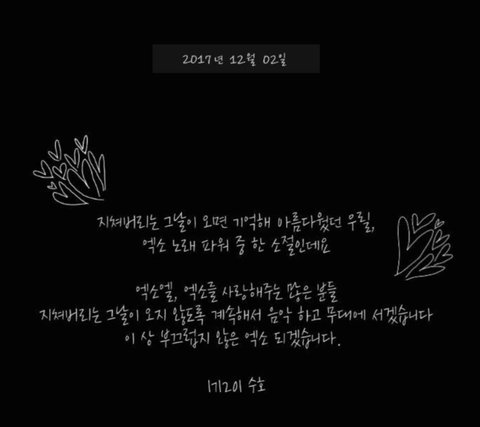 2017년 12월 02일
지쳐버리는 그날이 오면 기억해 아름다웠던 우릴,
엑소 노래 파워 중 한 소절인데요
엑소엘, 엑소를 사랑해주는 많은 분들
지쳐버리는 그날이 오지 않도록 계속해서 음악 하고 무대에 서겠습니다
이 상 부끄럽지 않은 엑소 되겠습니다.
171201 수호